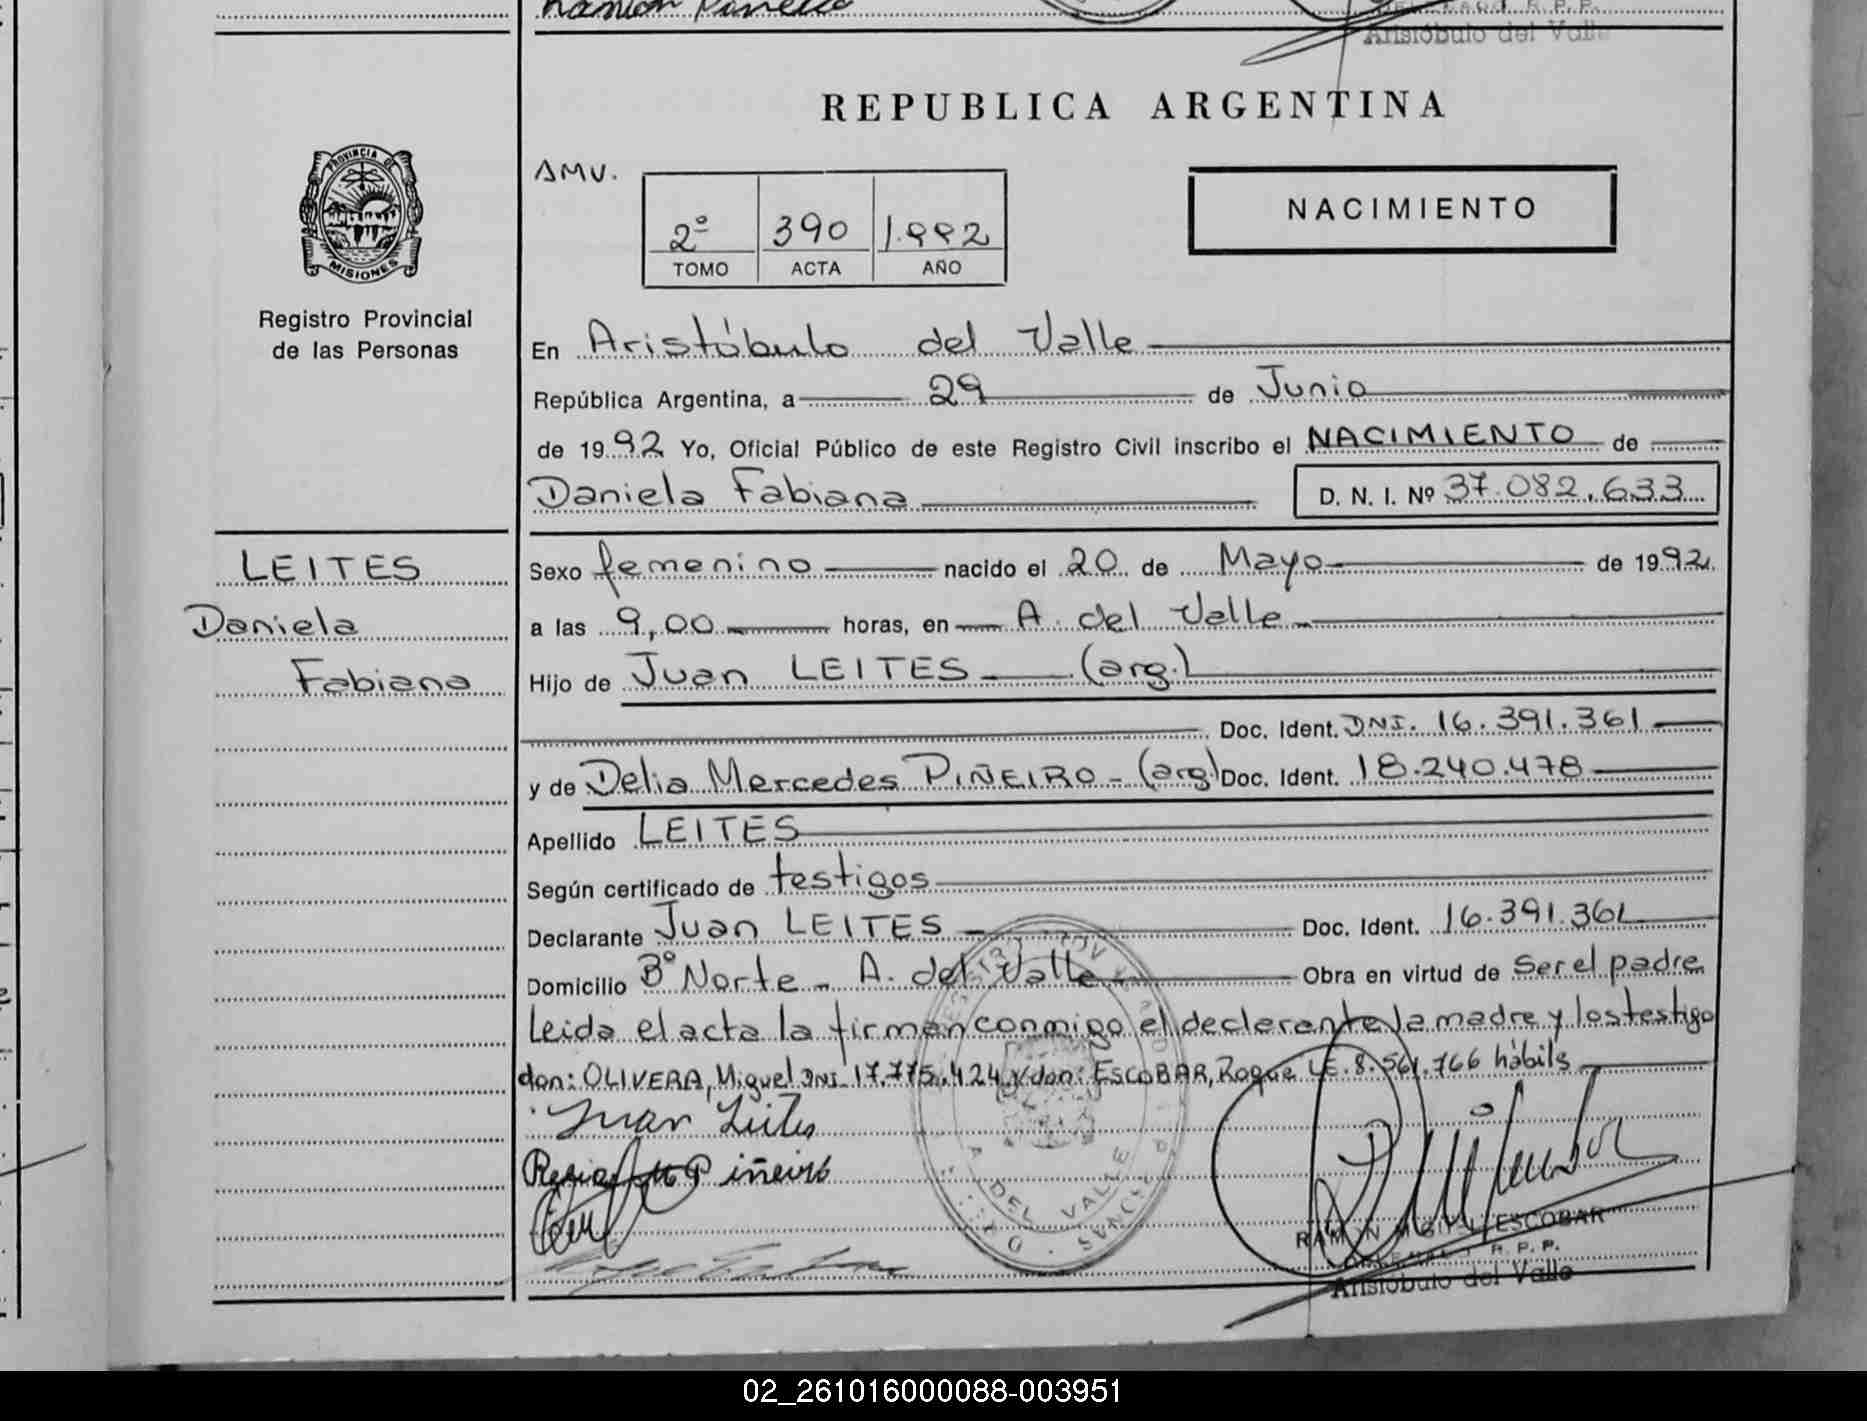 Aristóbulo del Valle
REPUBLICA ARGENTINA
PROVINCIA DE
MISIONES
Registro Provincial
de las Personas
AMV.
2º 390 1.992
TOMO ACTA AÑO
NACIMIENTO
En Aristóbulo del Valle
República Argentina, a 29 de Junio
de 1992 Yo, Oficial Público de este Registro Civil inscribo el NACIMIENTO de
Daniela Fabiana D. N. I. Nº 37.082.633
LEITES
Daniela
Fabiana
Sexo femenino nacido el 20 de Mayo de 1992
a las 9,00 horas, en A. del Valle
Hijo de Juan LEITES (arg.)
Doc. Ident. DNI. 16.391.361
y de Delia Mercedes PIÑEIRO - (arg) Doc. Ident. 18.240.478
Apellido LEITES
Según certificado de testigos
Declarante Juan LEITES Doc. Ident. 16.391.361
Domicilio Bº Norte - A. del Valle Obra en virtud de Ser el padre
Leida el acta la firman conmigo el declarante la madre y los testigo
don: OLIVERA, Miguel DNI 17.775.424 y don: ESCOBAR, Roque LE. 8.561.766 hàbils
Juan Leites
Piñeiro
DEL VALLE
RAMON ESCOBAR
R. P. P.
Aristóbulo del Valle
02_261016000088-003951